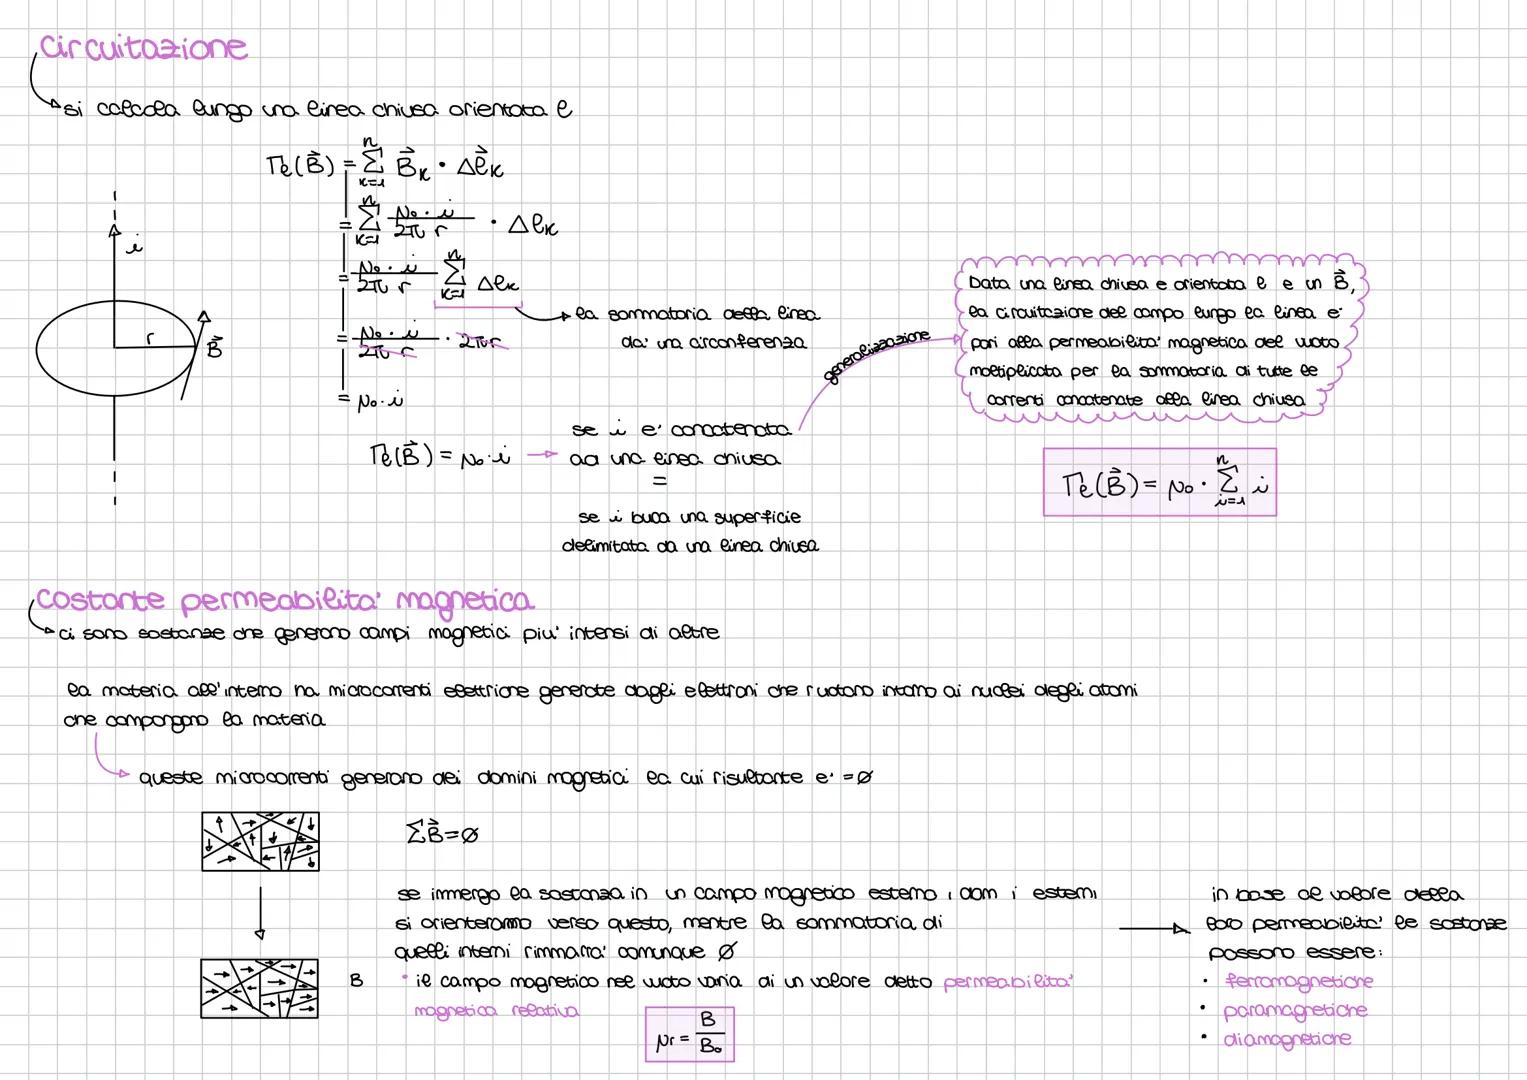 circuitazione
si calcola lungo una linea chiusa orientata l
Γℓ(B⃗) = Σ(k=1→n) B⃗k · Δℓ⃗k
= Σ(k=1→n) μ₀·i / 2π r · Δℓk
= μ₀·i / 2π r Σ(k=1→n) Δℓk
= μ₀·i / 2π r · 2πr
= μ₀·i
i
r
B⃗
la sommatoria della linea
da' una circonferenza
Γℓ(B⃗) = μ₀·i
se i e' concatenata
ad una linea chiusa
=
se i buca una superficie
delimitata da una linea chiusa
generalizzazione
Data una linea chiusa e orientata l e un B⃗,
la circuitazione del campo lungo la linea e'
pari alla permeabilita' magnetica del vuoto
moltiplicata per la sommatoria di tutte le
correnti concatenate alla linea chiusa
Γℓ(B⃗) = μ₀ · Σ(i=1→n) i
costante permeabilita' magnetica
ci sono sostanze che generano campi magnetici piu' intensi di altre
la materia all'interno ha microcorrenti elettriche generate dagli elettroni che ruotano intorno ai nuclei degli atomi
che compongono la materia
queste microcorrenti generano dei domini magnetici la cui risultante e' =Ø
ΣB⃗=Ø
se immergo la sostanza in un campo magnetico esterno i dom i esterni
si orienteranno verso questo, mentre la sommatoria di
quelli interni rimmarra' comunque Ø
B
• il campo magnetico nel vuoto varia di un valore detto permeabilita'
magnetica relativa
μr = B / B₀
in base al valore della
loro permeabilita' le sostanze
possono essere:
• ferromagnetiche
• paramagnetiche
• diamagnetiche